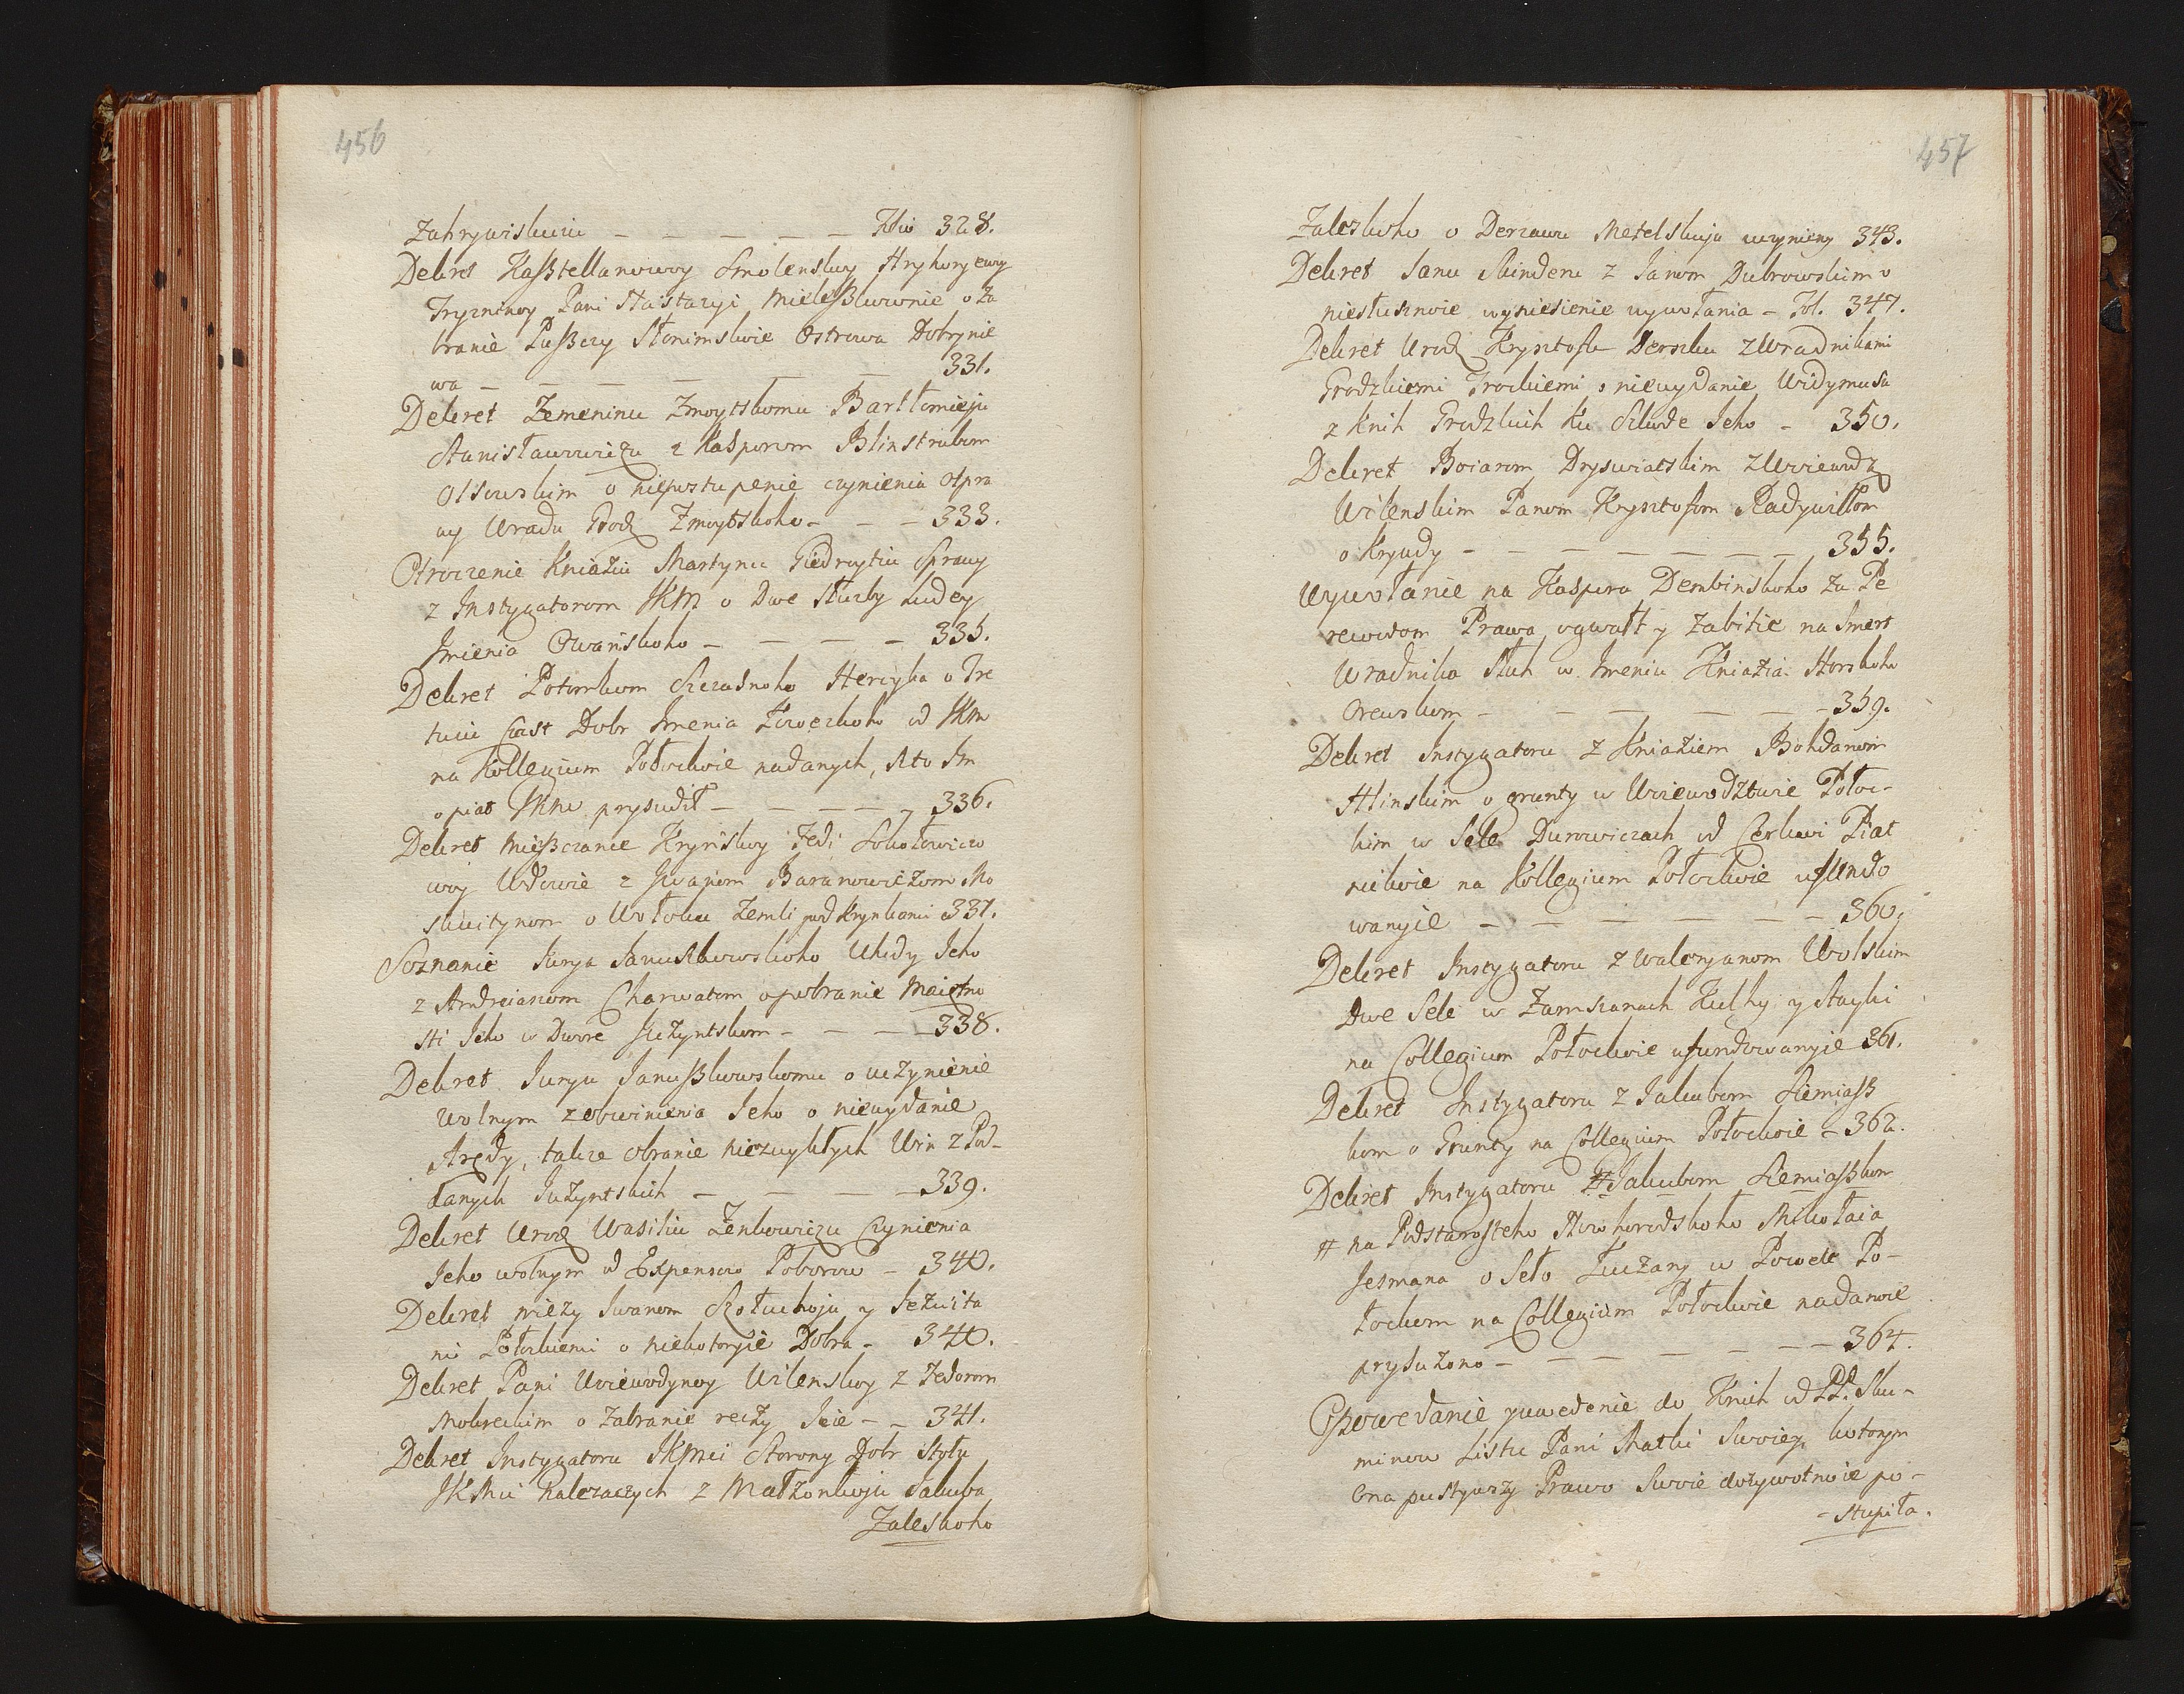 456
Zahrywiskuiu – – – – – – Folio 328.
Dekret Kaßtellanowoy Smolenskoy Hryhoryewoy
Tryzninoy Pani Nastazyi Mieleßkownie o Za
branie Pußczy Słonimskoie Ostrowa Dobrynie
wa – – – – – – 331.
Dekret Zemeninu Zmoytskomu Bartłomieju
Stanisławowiczu z Kasporom Blinstrubom
Olsowskim o niepostupenie czynienia Otpra
wy Uradu Grod Zmoytskoho – – – 333.
Otroczenie Kniaziu Martynu Giedroytiu Sprawy
z Instygatorom JKM o Dwe Służby Ludey
Imienia Owańskoho – – – – 335.
Dekret Potomkom Szczasnoho Hercyka o Tre
tuiu Czast Dobr Imenia Zowezkoho od JKM
na Kollegium Połockoie nadanych, Kto Im
opiat JKM prysudił – – – – 336.
Dekret Mießczance Krynskoy Fedi Sokołowiczo
woy Wdowie z Iwanom Baranowiczom Mo
skwitynom o Wołoku Zemli pod Krynkami 337.
Soznanie Jurya Januszkowskoho Uhody Jeho
z Andreianom Charwatom o pobranie Maiętno
sti Jeho w Dwore Jużyntskom – – – 338.
Dekret Juryu Janußkowskomu o uczynienie
wolnym z obwinienia Jeho o niewydanie
Arędy, także obranie niezwykłych Win z Pod-
danych Jużyntskich – – – – 339.
Dekret Urod Wasiliu Zenkowiczu Czynienia
Jeho wolnym od Expensow Poborow – 340.
Dekret mieży Iwanom Szołuchoju y Jezuita
mi Połockiemi o niekotoryie Dobra – 340.
Dekret Pani Woiewodynoy Wilenskoy z Fedorom
Mokreckim o Zabranie reczy Jeie – – 341.
Dekret Instygatoru JKMci Storony Dobr Stołu
JKMci Należaczych z Małżonkoju Jakuba
Zaleskoho
457
Zaleskoho o Derzawu Metelskuju uczyniony 343.
Dekret Janu Skinderu z Janom Dubrowskim o
niesłusznoie wyniesienie wywołania – Fol. 347.
Dekret Urod Krysztofu Derszku z Wradnikami
Grodzkiemi Trockiemi o niewydanie Widymusa
z Knih Grodzkich Ku Szkode Jeho – 350.
Dekret Boiarom Dryswiatskim z Woiewodz
Wilenskim Panom Krysztofom Radywiłłom
o Krywdy – – – – – – – 355.
Wywołanie na Kaspora Dembinskoho za Pe
rewodom Prawa o gwałt y Zabitie na Smert
Wradnika Słuh w Imeniu Kniazia Horskoho
Orewskom – – – – – – 359.
Dekret Instygatoru z Kniaziem Bohdanom
Hlinskim o grunty w Woiewodztwie Połoc-
kim w Sele Durowiczach od Cerkwi Piat
nickoie na Kollegium Połockoie ufundo
wanyie – – – – – – 360.
Dekret Instygatoru z Waleryanom Wolskim
Dwe Seli w Zamszanach Kulhy y Stayki
na Collegium Połockoie ufundowanyie 361.
Dekret Instygatoru z Jakubom Siemiaß
kom o Grunty na Collegium Połockoie – 362.
Dekret Instygatoru # Jakubom Siemiaßkom
# na Podstarosteho Nowhorodskoho Mikołaia
Jesmana o Seło Łuczany w Powete Po-
łockom na Collegium Połockoie nadanoie
prysużono – – – – – – 364.
Opowedanie ywwedenie do Knih od PP. Sku-
minow Listu Pani Matki Swoiey, kotorym
Ona pustywszy Prawo Swoie dożywotnoie po-
-stupiła.